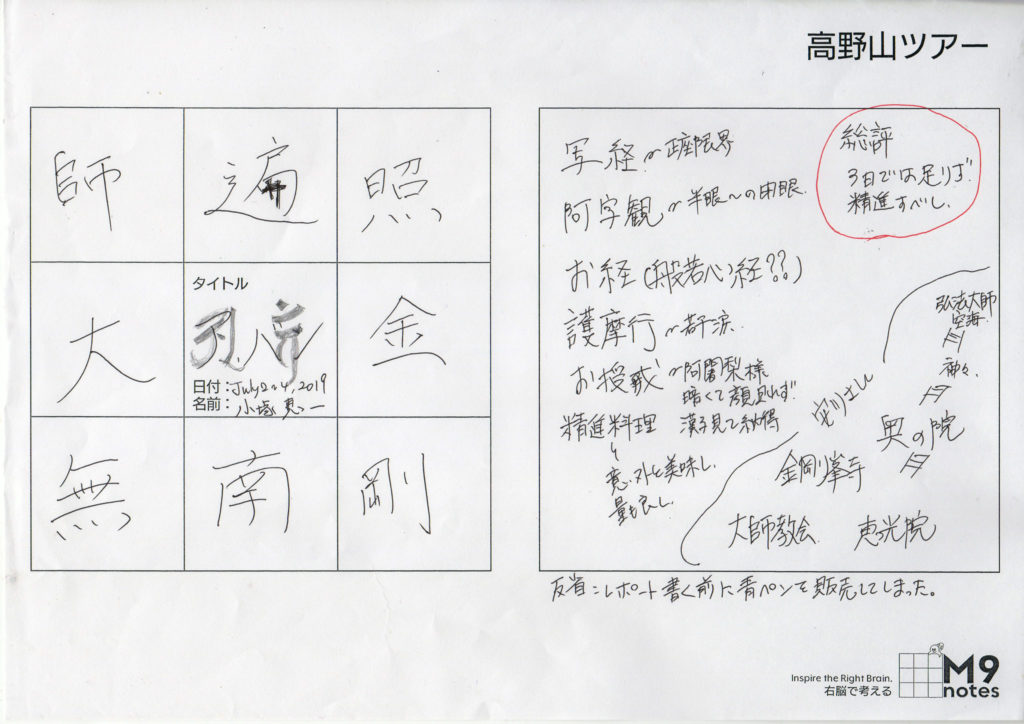 高野山ツアー
師 遍 照
大
タイトル
日付：July 2~4, 2019
名前：小塚 恵一
金
無 南 剛
写経〜正座限界
阿字観〜半眼〜の由眼
お経(般若心経??)
護摩行〜若干涼
お授戒〜阿闍梨様
暗くて顔見れず
漢字見て納得
精進料理
意外と美味し
量も良し
総評
3日では足りず
精進すべし
弘法大師
空海
奥の院
金剛峯寺
大師教会 恵光院
反省:レポート書く前に青ペンを販売してしまった。
Inspire the Right Brain.
右脳で考える
M9
notes